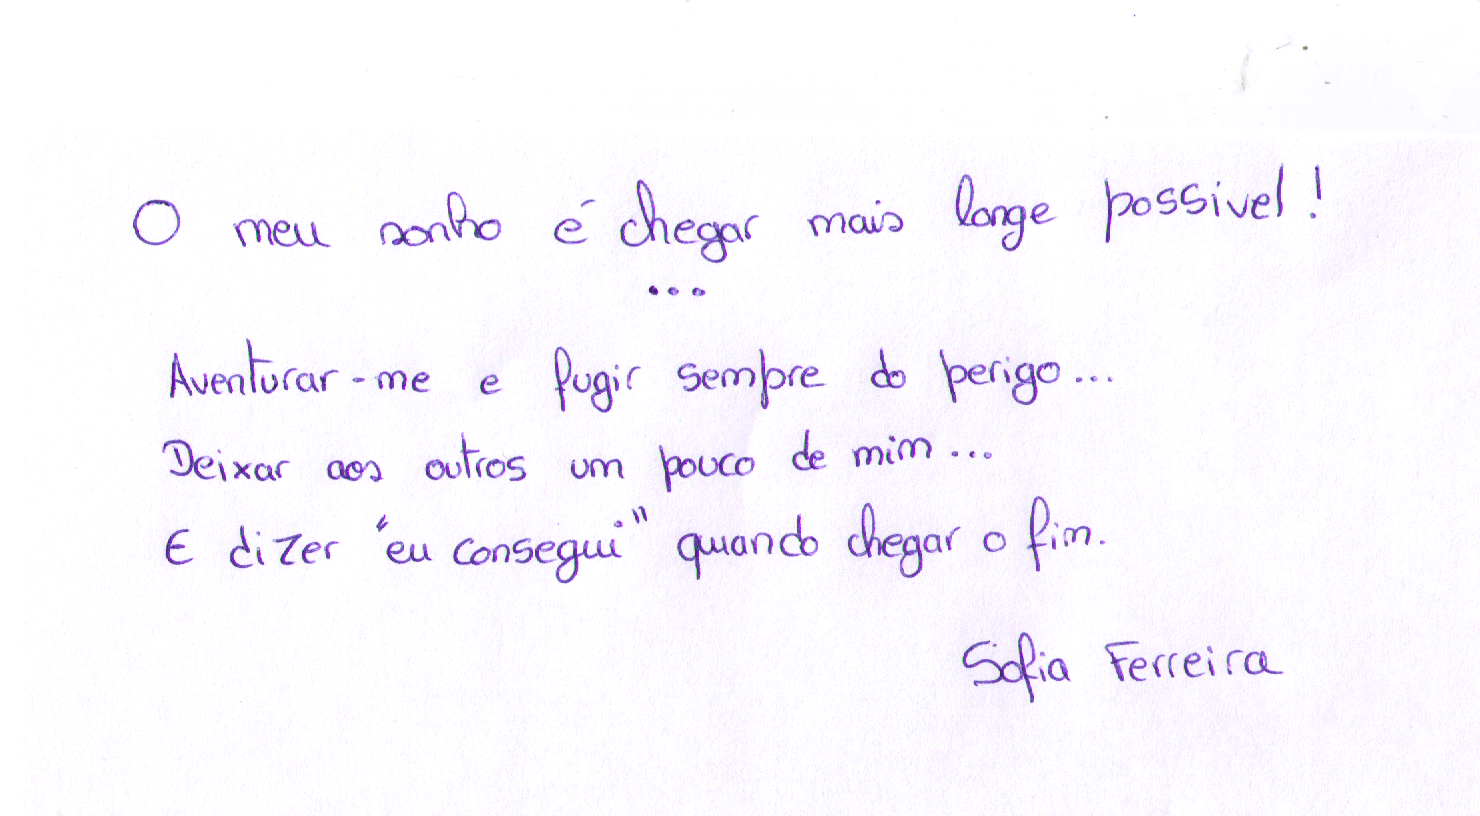 O meu sonho é chegar mais longe possivel!
...
Aventurar-me e fugir sempre do perigo...
Deixar aos outros um pouco de mim...
E dizer "eu consegui" quando chegar o fim.
Sofia Ferreira